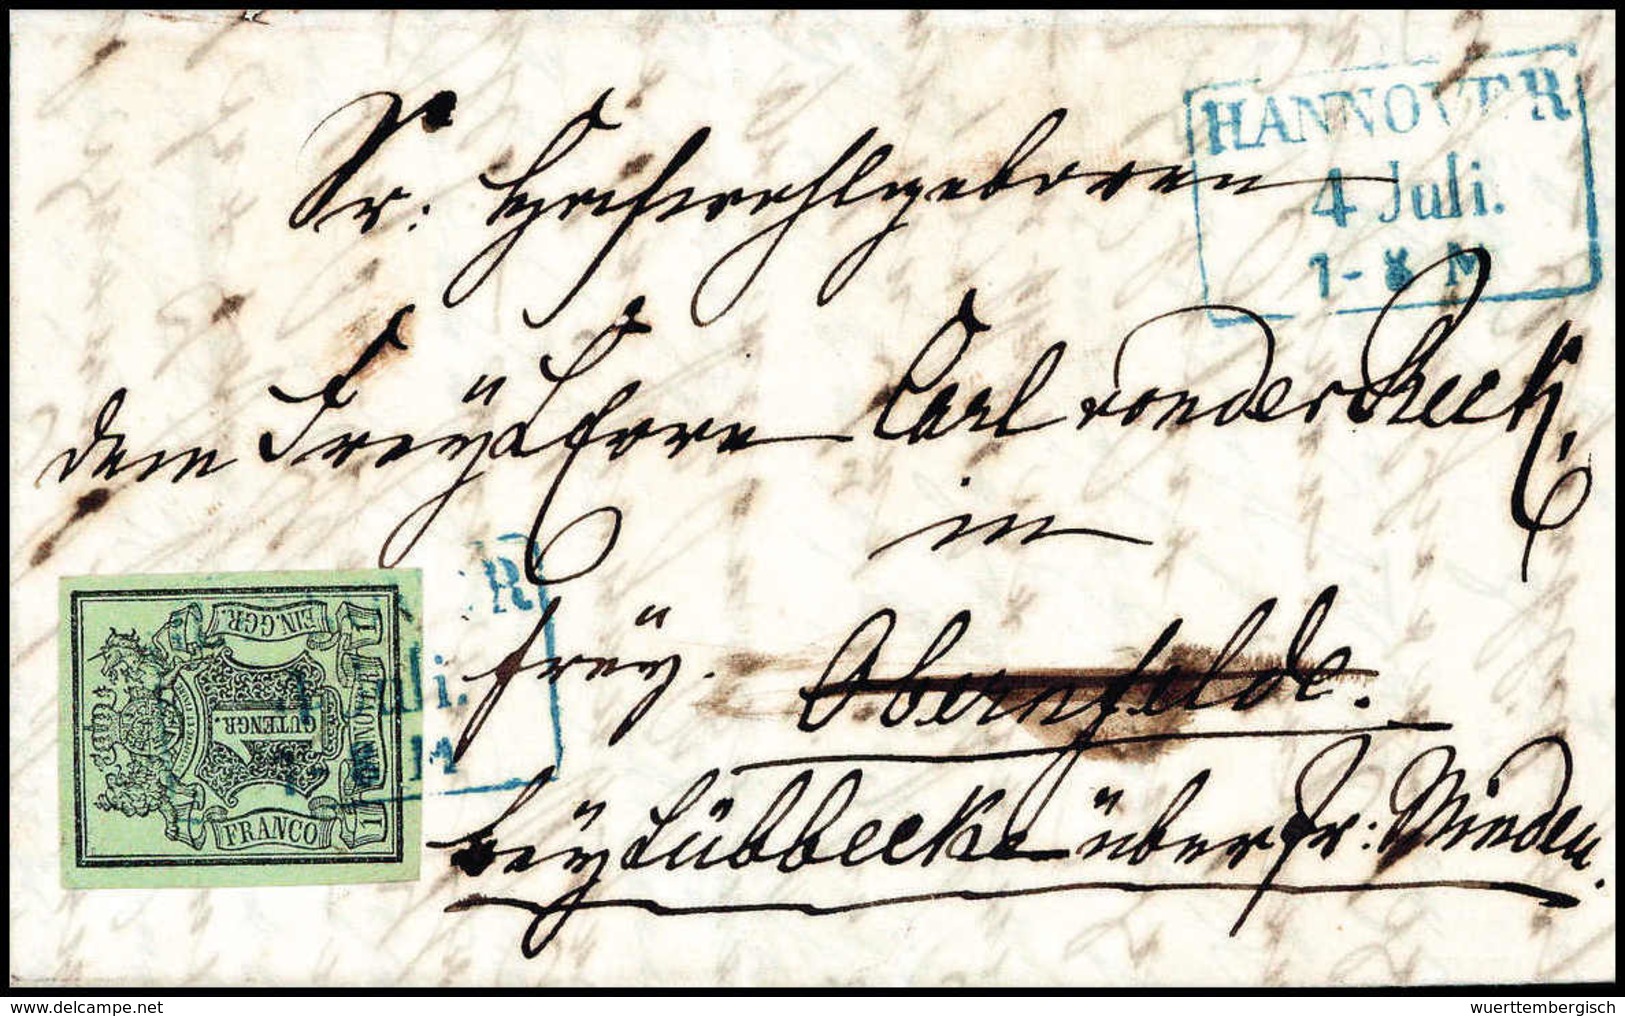 HANNOVER
4 Juli.
7-8 M
Sr: Hochwohlgeboren
dem Freÿherrn Carl von der Reck,
in
freÿ. Obernfelde.
beÿ Lübbecke über Pr: Minden.
R
Juli.
M
EIN.GGR.
1
GUTENGR.
FRANCO
HANNOVER
1
1
delcampe.net
wuerttembergisch